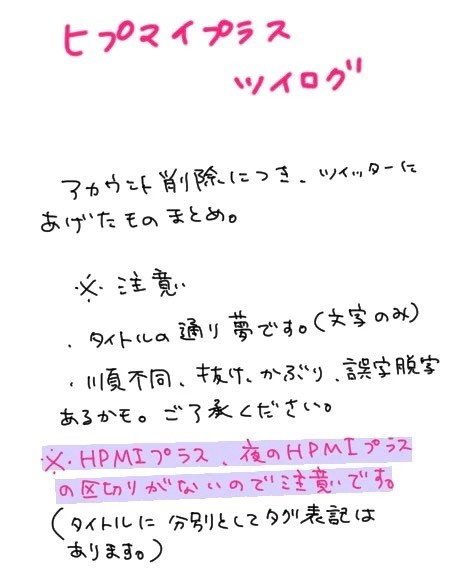 ヒプマイプラス
ツイログ
アカウント削除につき、ツイッターに
あげたものまとめ。
※ 注意
・タイトルの通り夢です。(文字のみ)
・順不同、抜け、かぶり、誤字脱字
あるかも。ご了承ください。
※HPMIプラス、夜のHPMIプラス
の区切りがないので注意です。
(タイトルに分別としてタグ表記は
あります。)